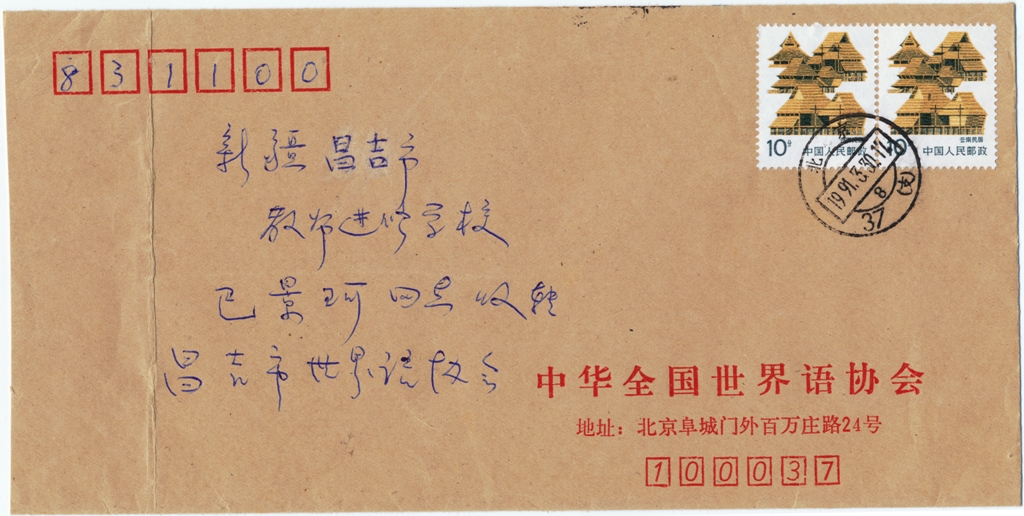 831100
10分 中国人民邮政
10分 云南民居 中国人民邮政
北京
1991.3.30.17
8
37(支)
新疆昌吉市
教师进修学校
巴景珂同志收转
昌吉市世界语协会
中华全国世界语协会
地址：北京阜城门外百万庄路24号
100037